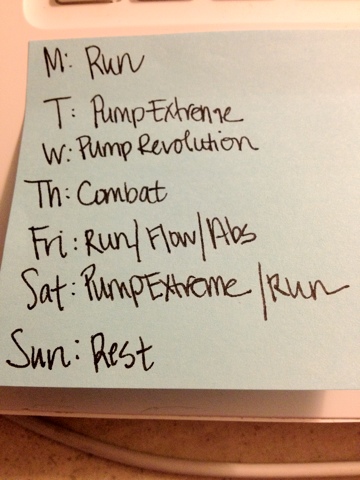 M: Run
T: PumpExtreme
W: PumpRevolution
Th: Combat
Fri: Run/Flow/Abs
Sat: PumpExtreme/Run
Sun: Rest